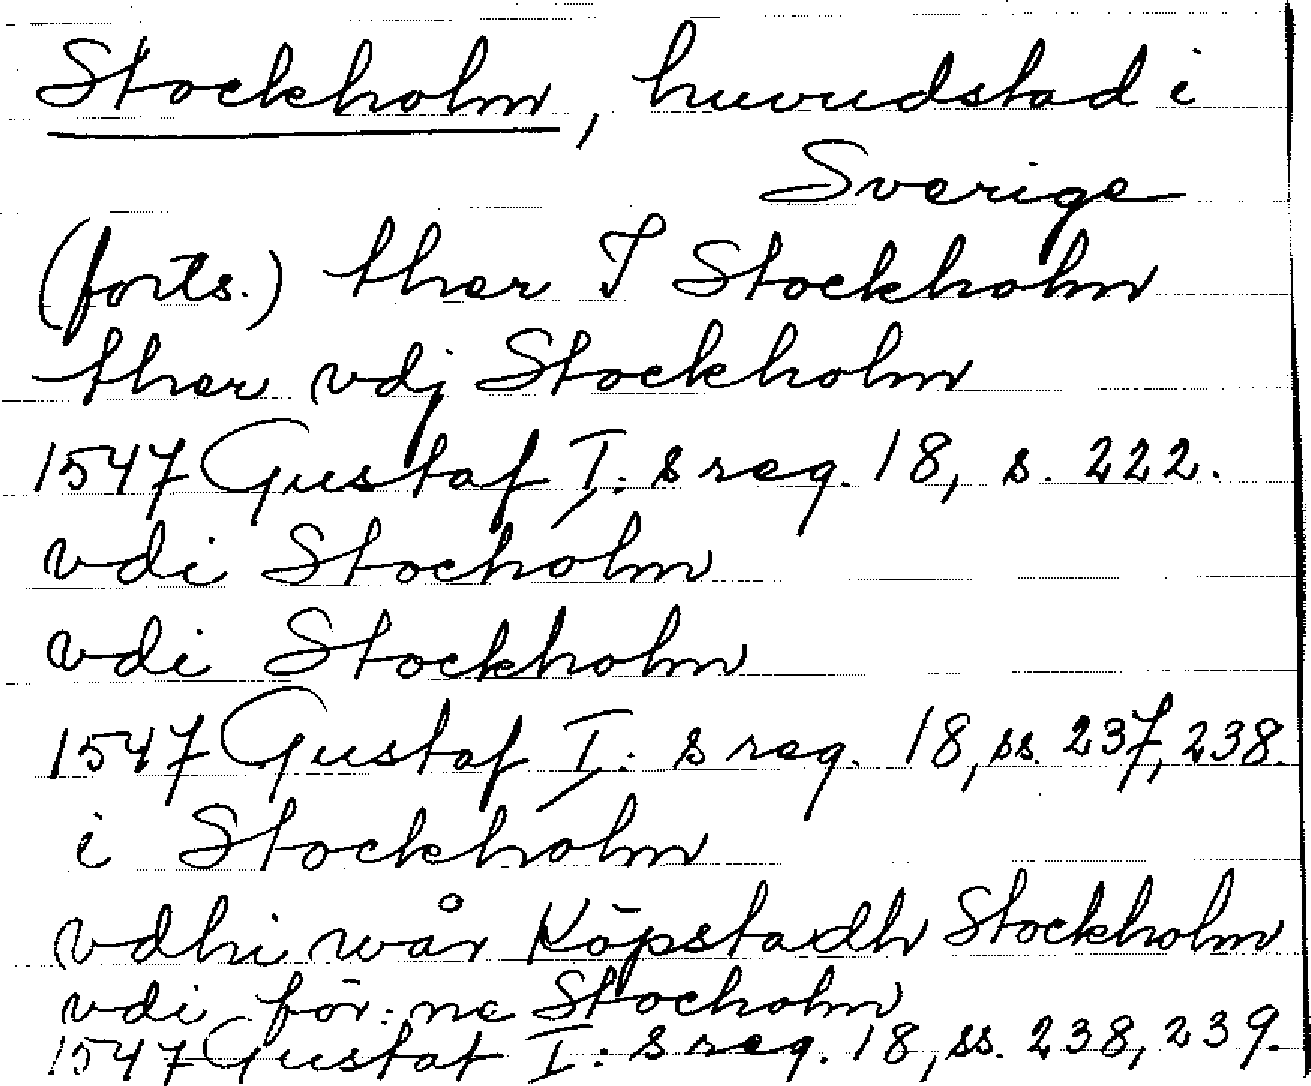 Stockholm, huvudstad i
Sverige
(forts.) ther I Stockholm
ther vdj Stockholm
1547 Gustaf I:s reg. 18, s. 222.
vdi Stocholm
vdi Stockholm
1547 Gustaf I:s reg. 18, ss. 237, 238.
i Stockholm
vdhi wår Köpstadh Stockholm
vdi för:ne Stocholm
1547 Gustaf I:s reg. 18, ss. 238, 239.